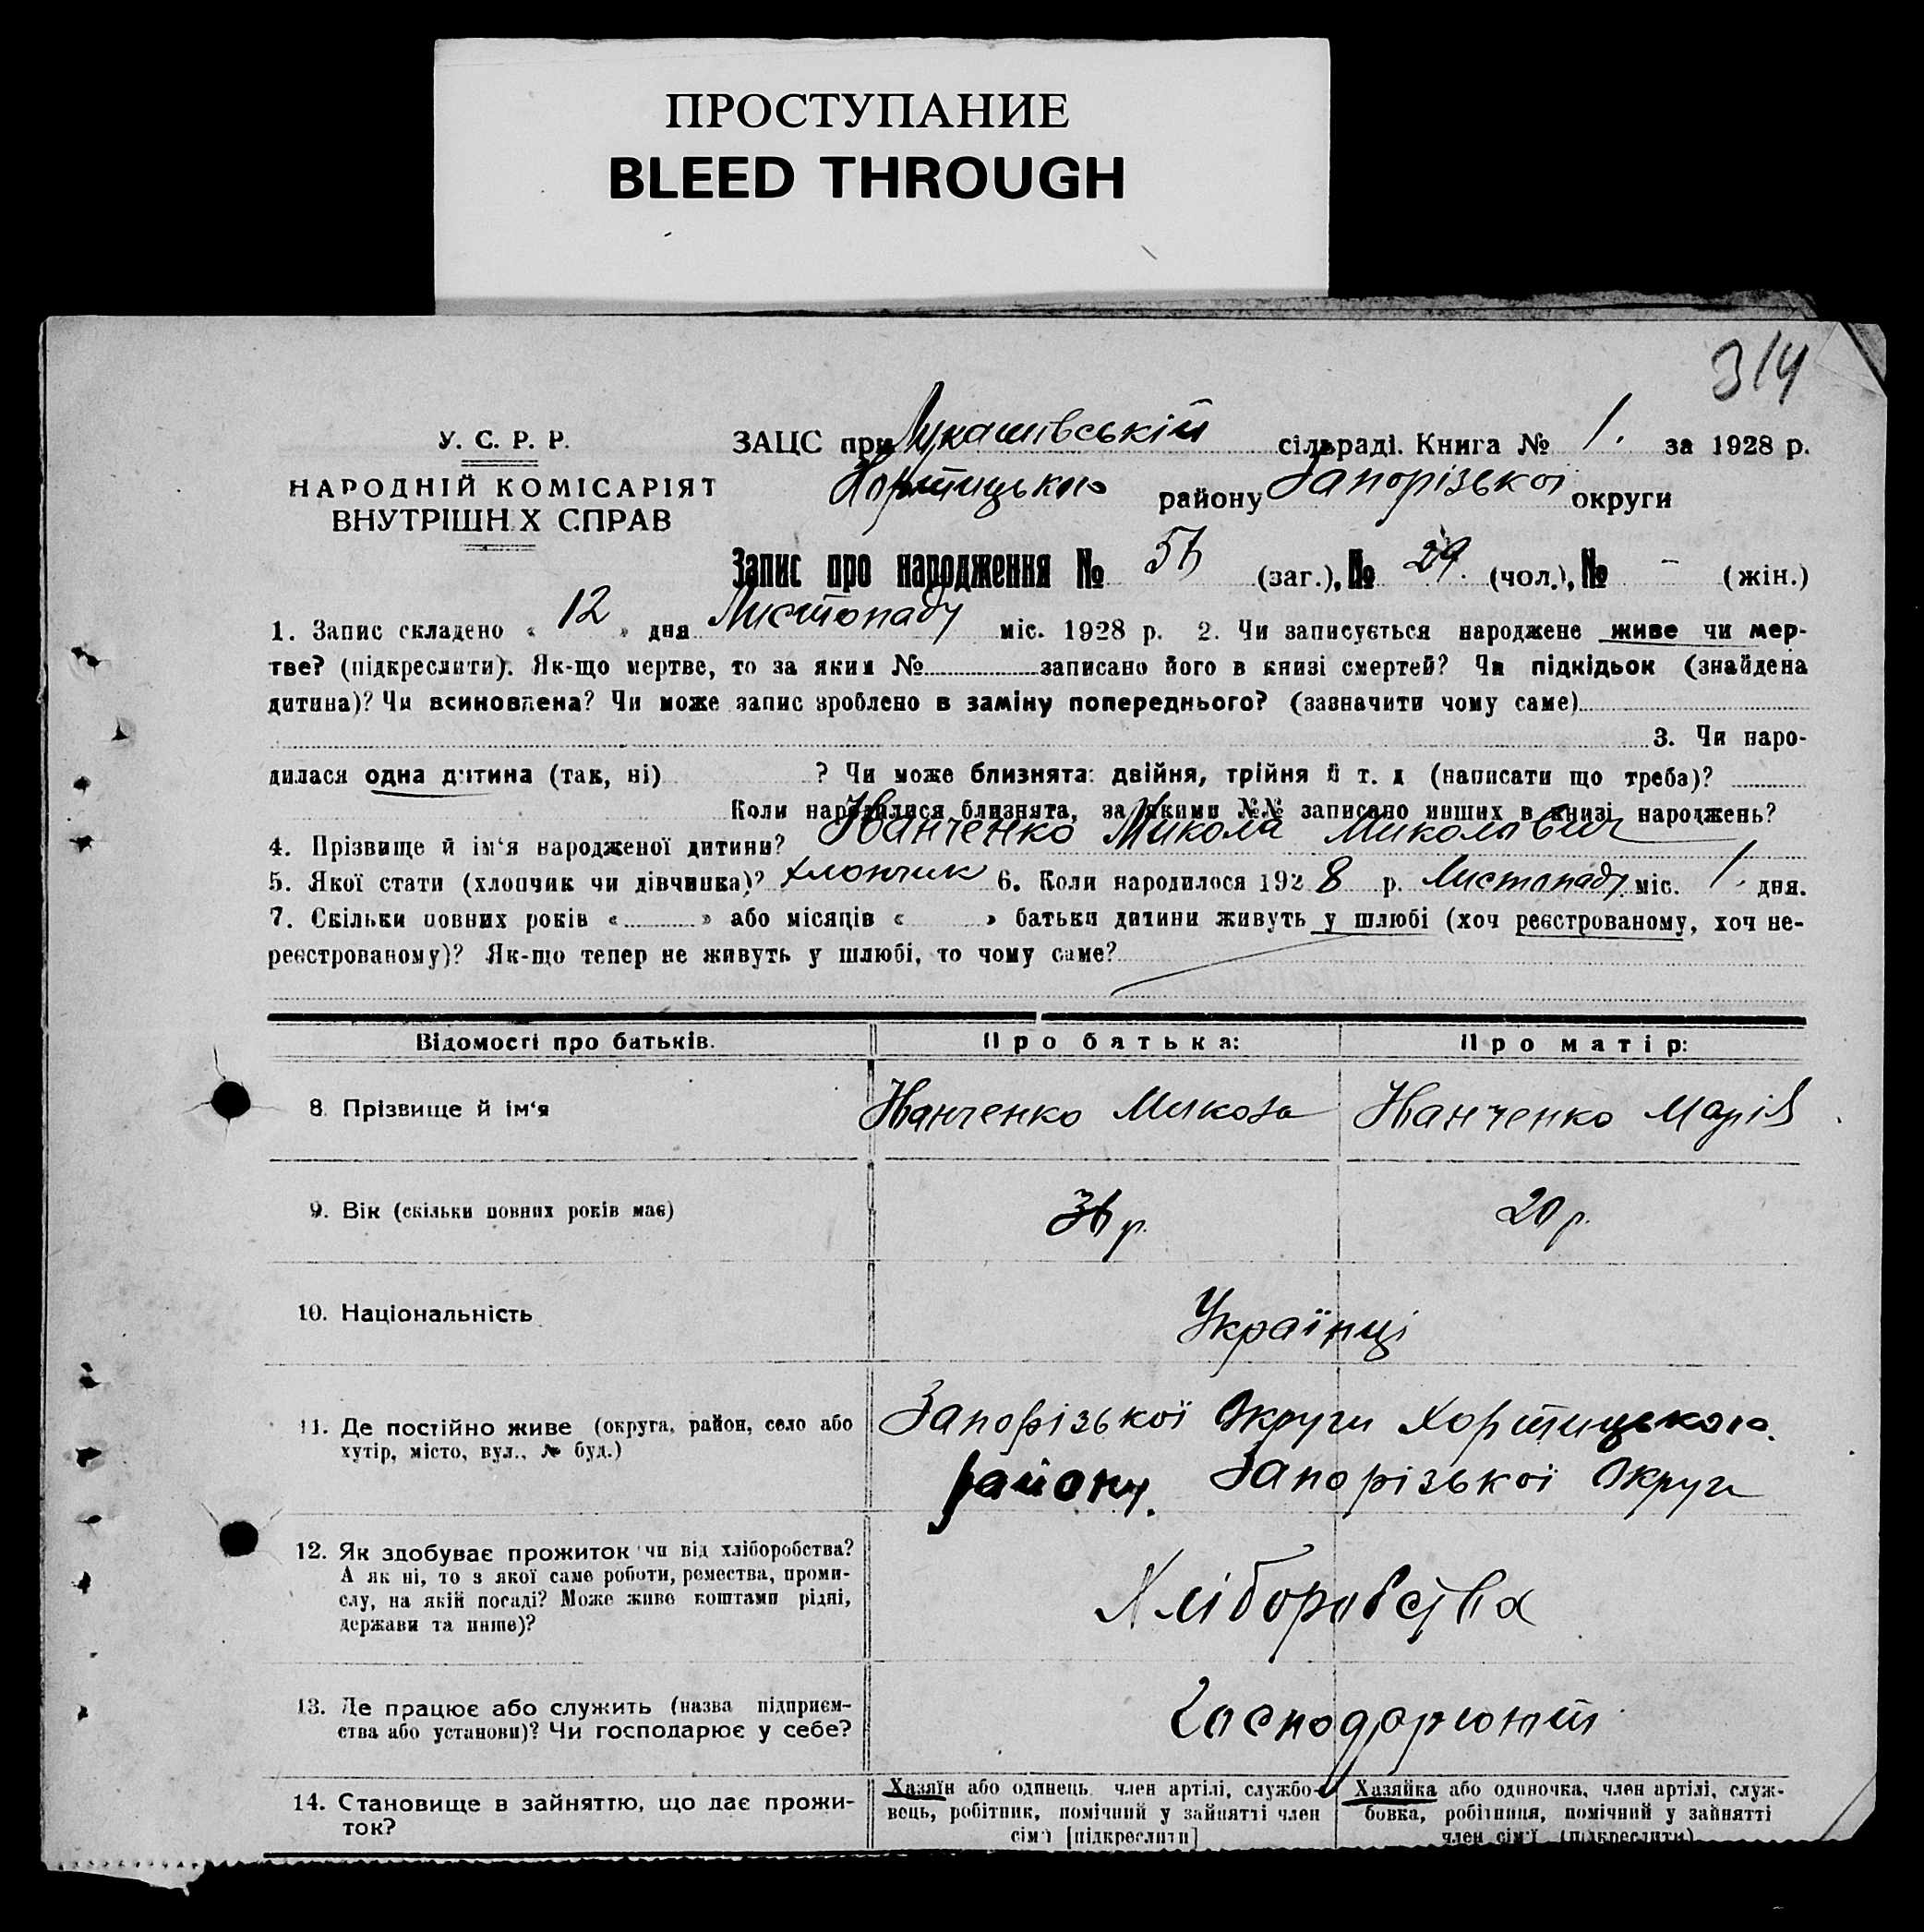 ПРОСТУПАНИЕ
BLEED THROUGH
314
У. С. Р. Р.
НАРОДНІЙ КОМІСАРІЯТ
ВНУТРІШН Х СПРАВ
ЗАЦС при Лукашівській сільраді. Книга № 1. за 1928 р.
Хортицького району Запорізької округи
Запис про народження № (заг.), № 29. (чол.), № - (жін.)
1. Запис складено « 12 » дня Листопаду міс. 1928 р. 2. Чи записується народжене живе чи мер-
тве? (підкреслити). Як-що мертве, то за яким № записано його в книзі смертей? Чи підкідьок (знайдена
дитина)? Чи всиновлена? Чи може запис зроблено в заміну попереднього? (зазначити чому саме)
3. Чи наро-
дилася одна дитина (так, ні) ? Чи може близнята: двійня, трійня й т. д (написати що треба)?
Коли народилися близнята, за якими №№ записано инших в книзі народжень?
4. Прізвище й ім‘я народженої дитини? Іванченко Микола Миколаєвич
5. Якої стати (хлопчик чи дівчинка)? хлопчик 6. Коли народилося 1928 р. Листопаду міс. 1. дня.
7. Скільки повних років « » або місяців « » батьки дитини живуть у шлюбі (хоч реєстрованому, хоч не-
реєстрованому)? Як-що тепер не живуть у шлюбі, то чому саме?
Відомості про батьків. Про батька: Про матір:
8. Прізвище й ім‘я Іванченко Микола Іванченко Марія
9. Вік (скільки повних років має) р. 20 р.
10. Національність Українці
11. Де постійно живе (округа, район, село або
хутір, місто, вул., № буд.)
Запорізької Округи Хортицького
району. Запорізької Округи
12. Як здобуває прожиток чи від хліборобства?
А як ні, то з якої саме роботи, ремества, проми-
слу, на якій посаді? Може живе коштами рідні,
держави та инше)?
Хліборобства
13. Де працює або служить (назва підприєм-
ства або установи)? Чи господарює у себе?
Господарюють
14. Становище в зайняттю, що дає прожи-
ток?
Хазяїн або одинець член артілі, службо-
вець, робітник, помічний у зайнятті член
сім‘ї [підкреслити]
Хазяйка або одиночка, член артілі, служ-
бовка, робітниця, помічний у зайнятті
член сім‘ї (підкреслити)